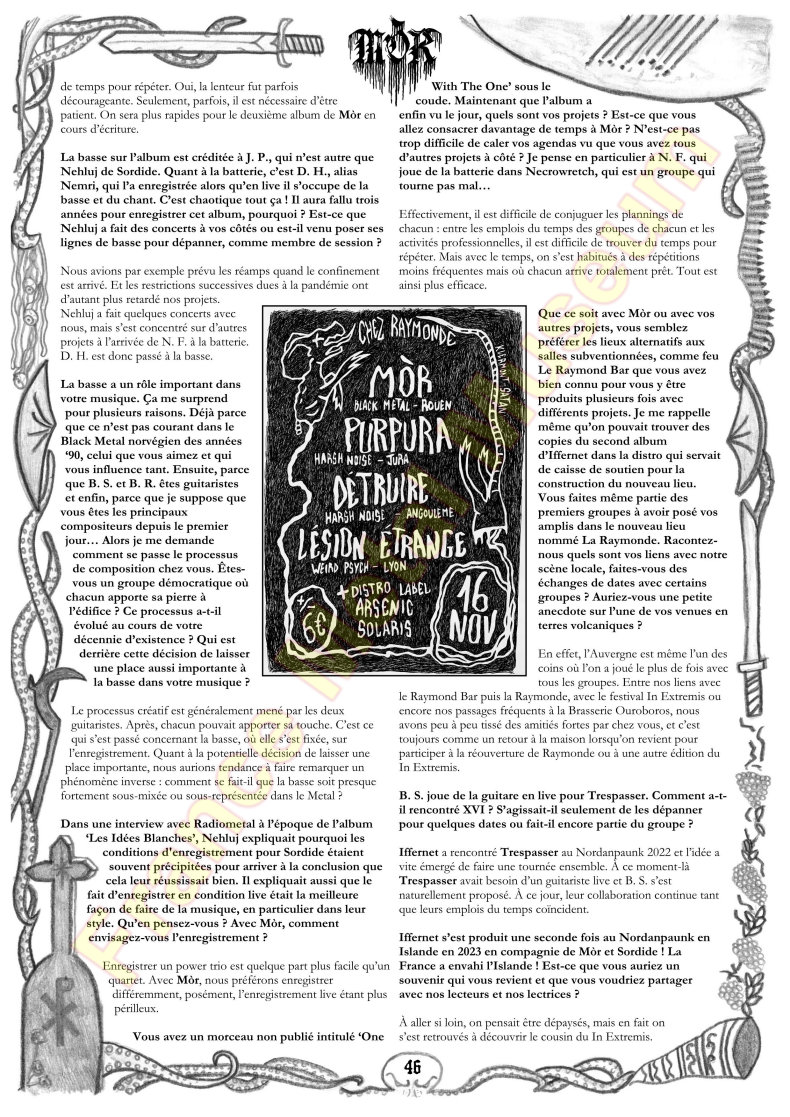 MÒR
de temps pour répéter. Oui, la lenteur fut parfois
décourageante. Seulement, parfois, il est nécessaire d’être
patient. On sera plus rapides pour le deuxième album de Mòr en
cours d’écriture.
La basse sur l’album est créditée à J. P., qui n’est autre que
Nehluj de Sordide. Quant à la batterie, c’est D. H., alias
Nemri, qui l’a enregistrée alors qu’en live il s’occupe de la
basse et du chant. C’est chaotique tout ça ! Il aura fallu trois
années pour enregistrer cet album, pourquoi ? Est-ce que
Nehluj a fait des concerts à vos côtés ou est-il venu poser ses
lignes de basse pour dépanner, comme membre de session ?
Nous avions par exemple prévu les réamps quand le confinement
est arrivé. Et les restrictions successives dues à la pandémie ont
d’autant plus retardé nos projets.
Nehluj a fait quelques concerts avec
nous, mais s’est concentré sur d’autres
projets à l’arrivée de N. F. à la batterie.
D. H. est donc passé à la basse.
La basse a un rôle important dans
votre musique. Ça me surprend
pour plusieurs raisons. Déjà parce
que ce n’est pas courant dans le
Black Metal norvégien des années
‘90, celui que vous aimez et qui
vous influence tant. Ensuite, parce
que B. S. et B. R. êtes guitaristes
et enfin, parce que je suppose que
vous êtes les principaux
compositeurs depuis le premier
jour… Alors je me demande
comment se passe le processus
de composition chez vous. Êtes-
vous un groupe démocratique où
chacun apporte sa pierre à
l’édifice ? Ce processus a-t-il
évolué au cours de votre
décennie d’existence ? Qui est
derrière cette décision de laisser
une place aussi importante à
la basse dans votre musique ?
Le processus créatif est généralement mené par les deux
guitaristes. Après, chacun pouvait apporter sa touche. C’est ce
qui s’est passé concernant la basse, où elle s’est fixée, sur
l’enregistrement. Quant à la potentielle décision de laisser une
place importante, nous aurions tendance à faire remarquer un
phénomène inverse : comment se fait-il que la basse soit presque
fortement sous-mixée ou sous-représentée dans le Metal ?
Dans une interview avec Radiometal à l’époque de l’album
‘Les Idées Blanches’, Nehluj expliquait pourquoi les
conditions d'enregistrement pour Sordide étaient
souvent précipitées pour arriver à la conclusion que
cela leur réussissait bien. Il expliquait aussi que le
fait d’enregistrer en condition live était la meilleure
façon de faire de la musique, en particulier dans leur
style. Qu’en pensez-vous ? Avec Mòr, comment
envisagez-vous l’enregistrement ?
Enregistrer un power trio est quelque part plus facile qu’un
quartet. Avec Mòr, nous préférons enregistrer
différemment, posément, l’enregistrement live étant plus
périlleux.
Vous avez un morceau non publié intitulé ‘One
With The One’ sous le
coude. Maintenant que l’album a
enfin vu le jour, quels sont vos projets ? Est-ce que vous
allez consacrer davantage de temps à Mòr ? N’est-ce pas
trop difficile de caler vos agendas vu que vous avez tous
d’autres projets à côté ? Je pense en particulier à N. F. qui
joue de la batterie dans Necrowretch, qui est un groupe qui
tourne pas mal…
Effectivement, il est difficile de conjuguer les plannings de
chacun : entre les emplois du temps des groupes de chacun et les
activités professionnelles, il est difficile de trouver du temps pour
répéter. Mais avec le temps, on s’est habitués à des répétitions
moins fréquentes mais où chacun arrive totalement prêt. Tout est
ainsi plus efficace.
Que ce soit avec Mòr ou avec vos
autres projets, vous semblez
préférer les lieux alternatifs aux
salles subventionnées, comme feu
Le Raymond Bar que vous avez
bien connu pour vous y être
produits plusieurs fois avec
différents projets. Je me rappelle
même qu’on pouvait trouver des
copies du second album
d’Iffernet dans la distro qui servait
de caisse de soutien pour la
construction du nouveau lieu.
Vous faites même partie des
premiers groupes à avoir posé vos
amplis dans le nouveau lieu
nommé La Raymonde. Racontez-
nous quels sont vos liens avec notre
scène locale, faites-vous des
échanges de dates avec certains
groupes ? Auriez-vous une petite
anecdote sur l’une de vos venues en
terres volcaniques ?
En effet, l’Auvergne est même l’un des
coins où l’on a joué le plus de fois avec
tous les groupes. Entre nos liens avec
le Raymond Bar puis la Raymonde, avec le festival In Extremis ou
encore nos passages fréquents à la Brasserie Ouroboros, nous
avons peu à peu tissé des amitiés fortes par chez vous, et c’est
toujours comme un retour à la maison lorsqu’on revient pour
participer à la réouverture de Raymonde ou à une autre édition du
In Extremis.
B. S. joue de la guitare en live pour Trespasser. Comment a-t-
il rencontré XVI ? S’agissait-il seulement de les dépanner
pour quelques dates ou fait-il encore partie du groupe ?
Iffernet a rencontré Trespasser au Nordanpaunk 2022 et l’idée a
vite émergé de faire une tournée ensemble. À ce moment-là
Trespasser avait besoin d’un guitariste live et B. S. s’est
naturellement proposé. À ce jour, leur collaboration continue tant
que leurs emplois du temps coïncident.
Iffernet s’est produit une seconde fois au Nordanpaunk en
Islande en 2023 en compagnie de Mòr et Sordide ! La
France a envahi l’Islande ! Est-ce que vous auriez un
souvenir qui vous revient et que vous voudriez partager
avec nos lecteurs et nos lectrices ?
À aller si loin, on pensait être dépaysés, mais en fait on
s’est retrouvés à découvrir le cousin du In Extremis.
CHEZ RAYMONDE
MÒR
BLACK METAL - ROUEN
PURPURA
HARSH NOISE - JURA
DÉTRUIRE
HARSH NOISE - ANGOULEME
LÉSION ETRANGE
WEIRD PSYCH - LYON
+ DISTRO LABEL
ARSENIC
SOLARIS
+/-
6€
16
NOV
France Metal Museum
46